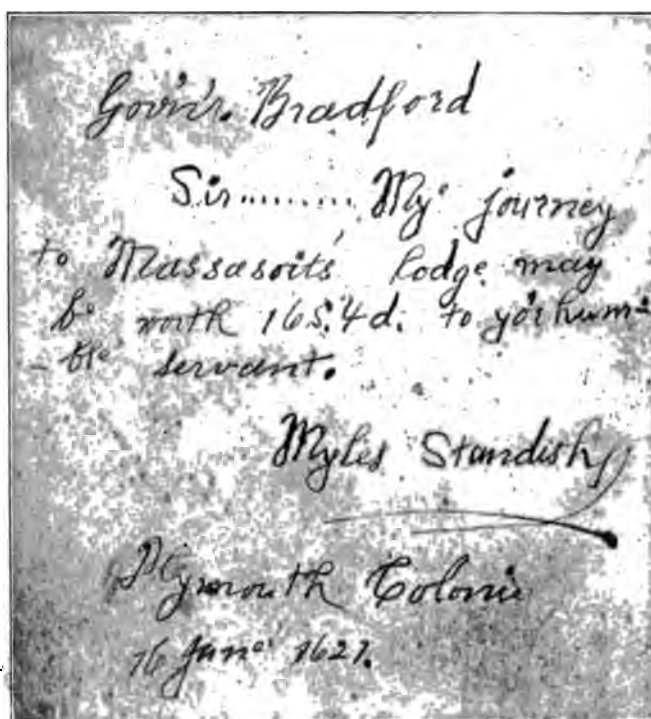 Gov'n'r. Bradford
Sir......... My journey
to Massasoits' lodge may
be worth 16s.4d. to yo'r hum-
- ble servant.
Myles Standish
Plymouth Colonie
16 June 1621.